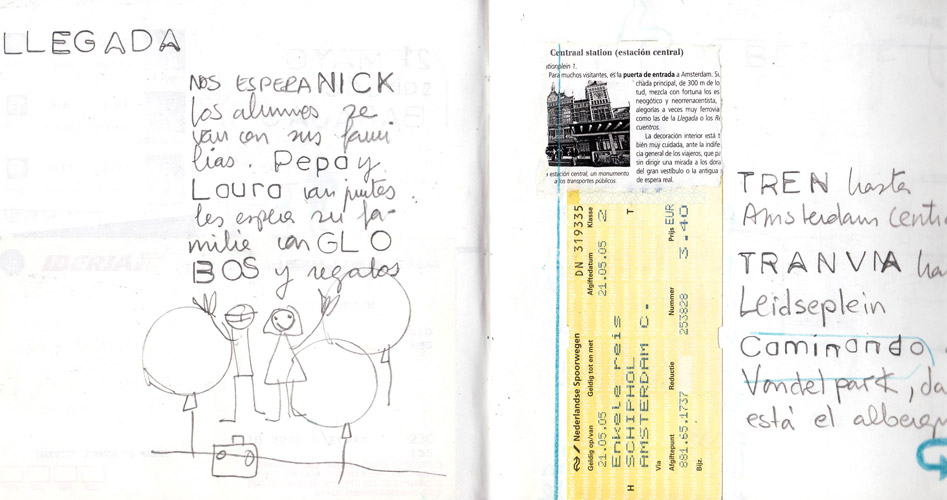 LLEGADA
NOS ESPERA NICK
los alumnos se
van con sus fami
lias. Pepa y
Laura van juntas
les espera su fa-
milia con GLO
BOS y regalos
Centraal station (estación central)
tionplein 1.
Para muchos visitantes, es la puerta de entrada a Amsterdam. Su
chada principal, de 300 m de lo
tud, mezcla con fortuna los es
neogótico y neorrenacentista,
alegorías a veces muy ferrovia
como las de la Llegada o los Re
cuentros.
La decoración interior está t
bién muy cuidada, ante la indife
cia general de los viajeros, que pa
sin dirigir una mirada a los dora
del gran vestíbulo o la antigua
de espera real.
estación central, un monumento
a los transportes públicos.
Nederlandse Spoorwegen DN 319335
Geldig op/van Geldig tot en met Afgiftedatum Klasse
21.05.05 21.05.05 2
Enkele reis
H SCHIPHOL T
AMSTERDAM C.
Via
Afgiftepunt Reductie Nummer Prijs EUR
881.65.1737 253828 3.40
Bijz.
TREN hasta
Amsterdam Centr
TRANVIA ha
Leidseplein
Caminando
Vondelpark, do
está el albergu